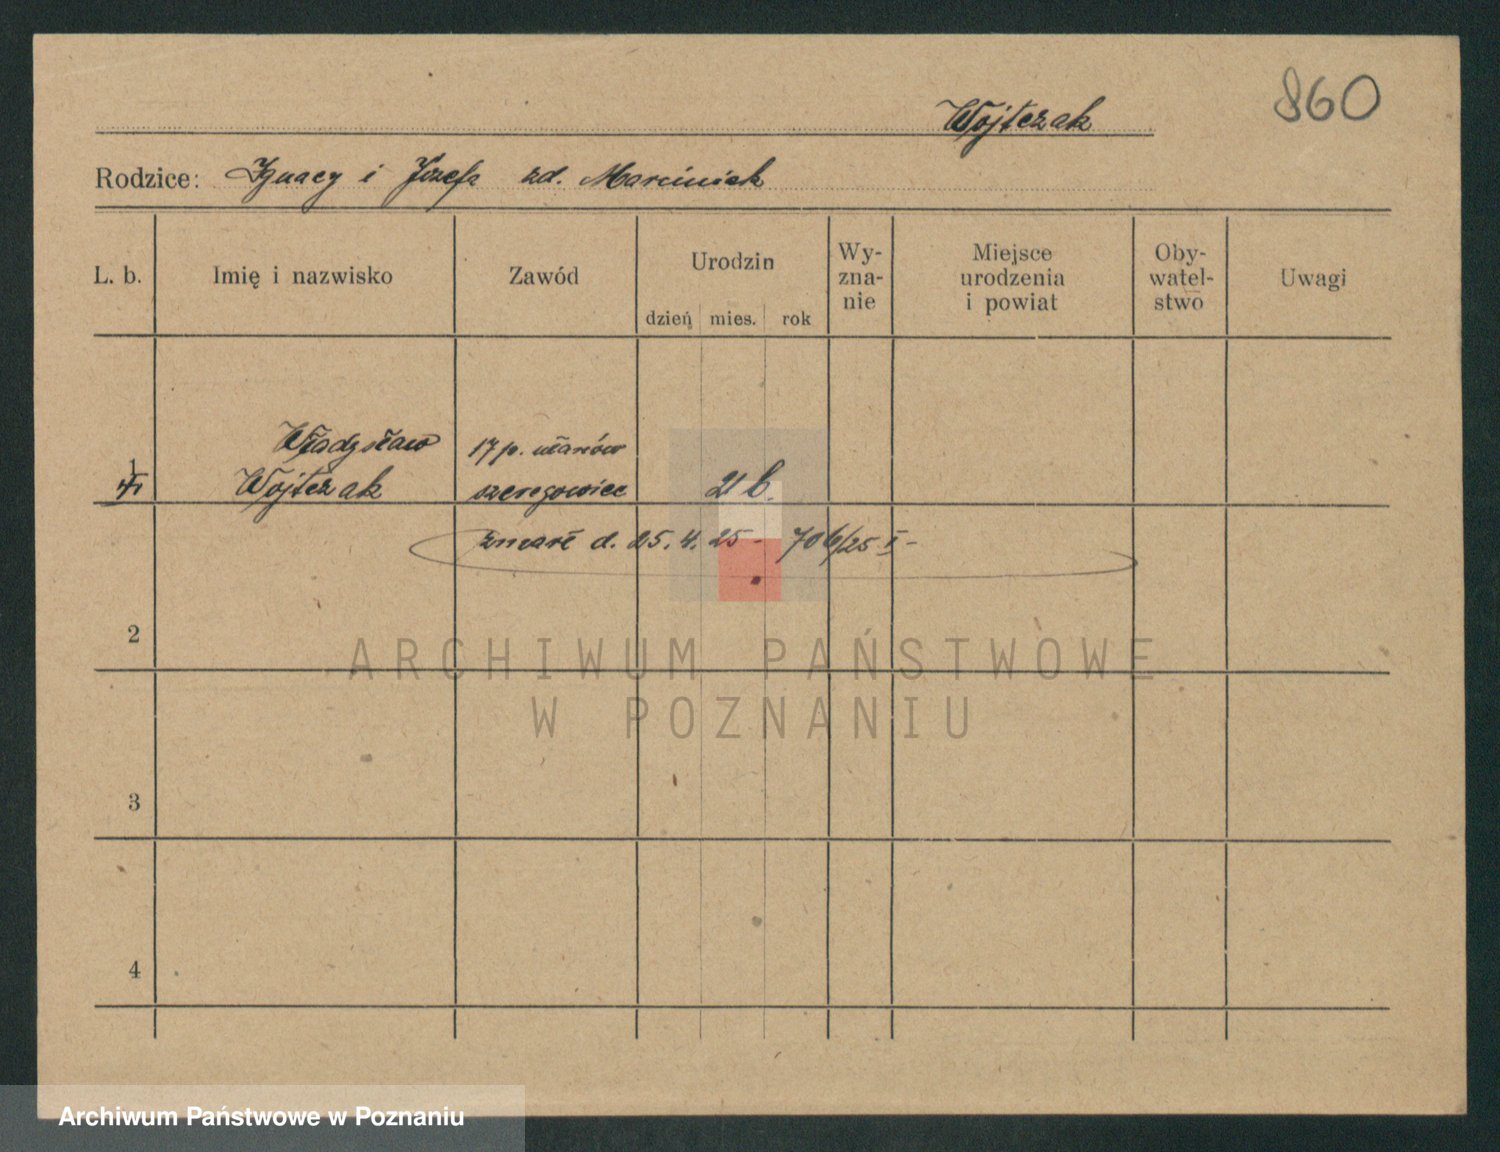 860
Wojtczak
Rodzice: Ignacy i Józefa zd. Marciniak
L. b. Imię i nazwisko Zawód Urodzin dzień mies. rok Wy-zna-nie Miejsce urodzenia i powiat Oby-watel-stwo Uwagi
1 Władysław 17 p. ułanów
Wojtczak szeregowiec 21 l.
zmarł d. 25. 4. 25 - 706/25 I -
2
ARCHIWUM PAŃSTWOWE
W POZNANIU
3
4
Archiwum Państwowe w Poznaniu